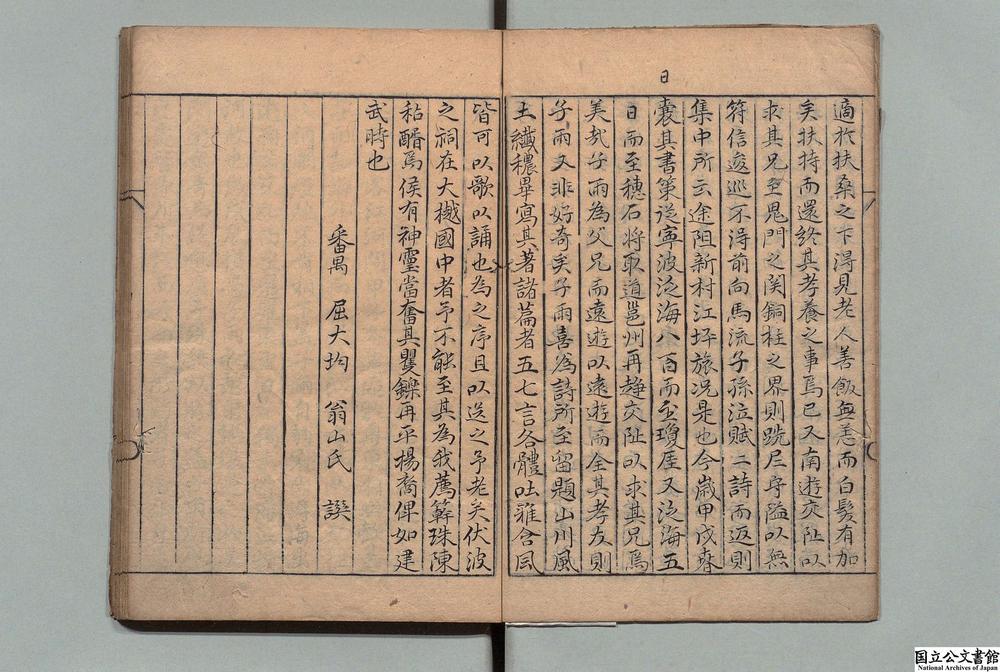 日
適於扶桑之下得見老人善飯無恙而白髮有加
矣扶持而還終其孝養之事焉已又南遊交阯以
求其兄至鬼門之関銅柱之界則跣足守隘以無
符信逡巡不得前向馬流子孫泣賦二詩而返則
集中所云途阻新村江坪旅况是也今歲甲戌春
囊其書策從寧波泛海八百而至瓊厓又泛海五
日而至穗石將取道邕州再趨交阯以求其兄焉
美哉子雨為父兄而遠遊以遠遊而全其孝友則
子雨又非好奇矣子雨喜為詩所至留題山川風
土纖穠畢寫其著諸篇者五七言各體吐雅含風
皆可以歌以誦也為之序且以送之予老矣伏波
之祠在大樾國中者予不能至其為我薦觧珠陳
秥醑焉侯有神靈當奮其矍鑠再平楊裔俾如建
武時也
番禺 屈大均 翁山氏 譔
国立公文書館
National Archives of Japan